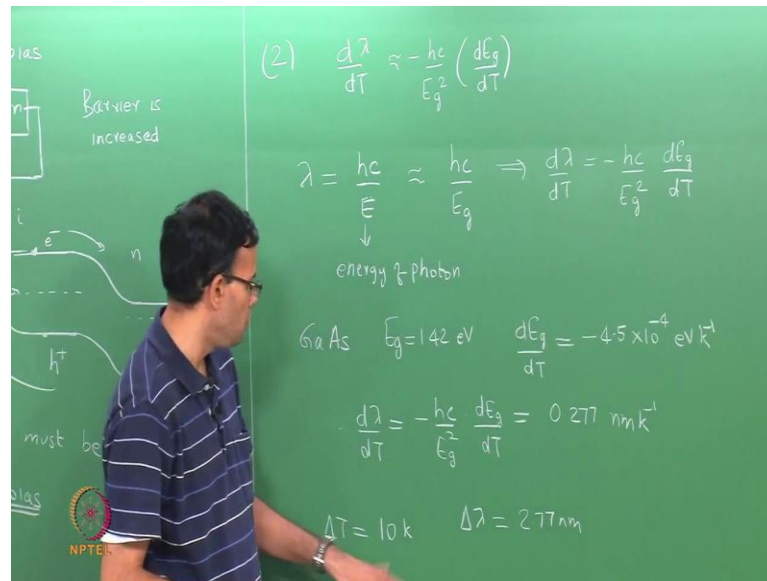 bias
n
Barrier is
increased
i
e⁻
n
h⁺
must be
bias
(2) dλ/dT ≈ - hc/Eg² (dEg/dT)
λ = hc/E ≈ hc/Eg ⇒ dλ/dT = - hc/Eg² dEg/dT
↓
energy of photon
GaAs Eg = 1.42 eV dEg/dT = -4.5 × 10⁻⁴ eV K⁻¹
dλ/dT = - hc/Eg² dEg/dT = 0.277 nm K⁻¹
ΔT = 10 K Δλ = 2.77 nm
NPTEL